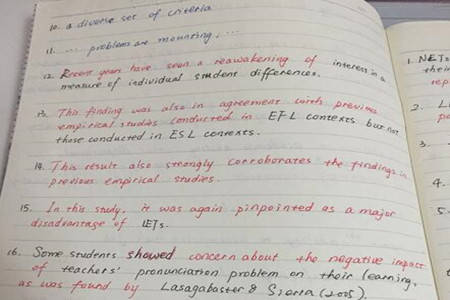 10. a diverse set of criteria
11. ... problems are mounting, ...
12. Recent years have seen a reawakening of interest in a
measure of individual student differences.
13. This finding was also in agreement with previous
empirical studies conducted in EFL contexts but not
those conducted in ESL contexts.
14. This result also strongly corroborates the findings in
previous empirical studies.
15. In this study, it was again pinpointed as a major
disadvantage of LETs.
16. Some students showed concern about the negative impact
of teachers' pronunciation problem on their learning,
as was found by Lasagabaster & Sierra (2005).
1. NETs
their
rep
2. L
3.
4.
5.